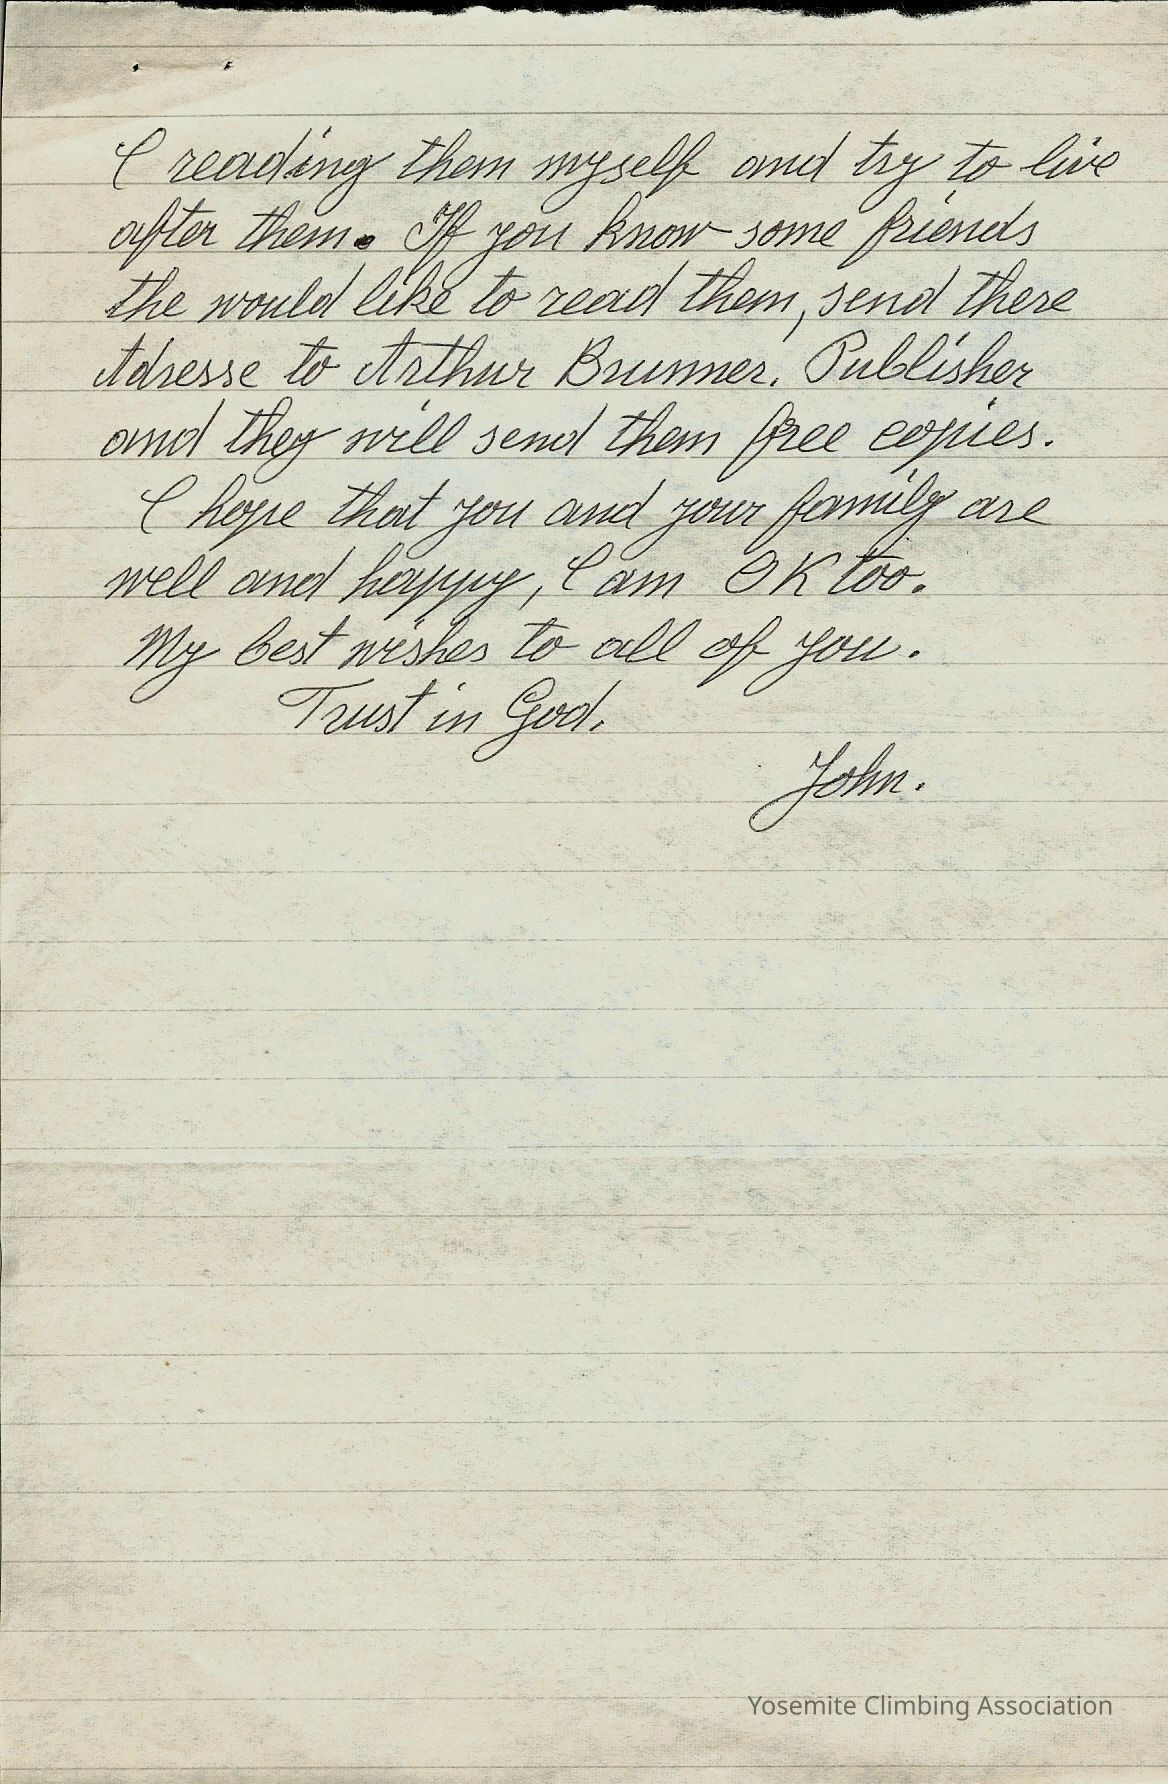 I reading them myself and try to live
after them. If you know some friends
the would like to read them, send there
Adresse to Arthur Brunner. Publisher
and they will send them free copies.
I hope that you and your family are
well and happy, I am OK too.
My best wishes to all of you.
Trust in God.
John.
Yosemite Climbing Association